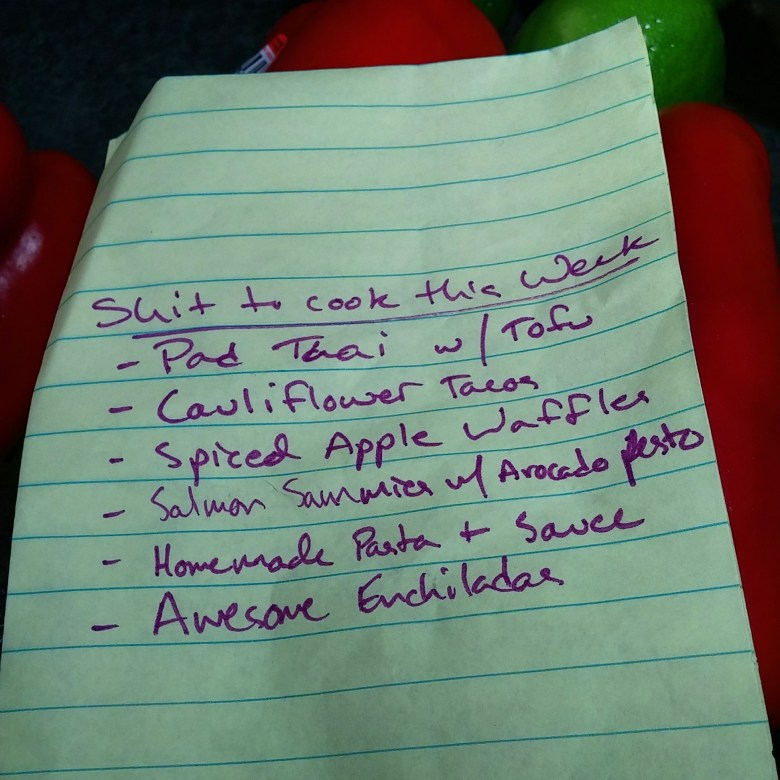 Shit to cook this Week
- Pad Thai w/ Tofu
- Cauliflower Tacos
- Spiced Apple Waffles
- Salmon Sammies w/ Avocado pesto
- Homemade Pasta + Sauce
- Awesome Enchiladas